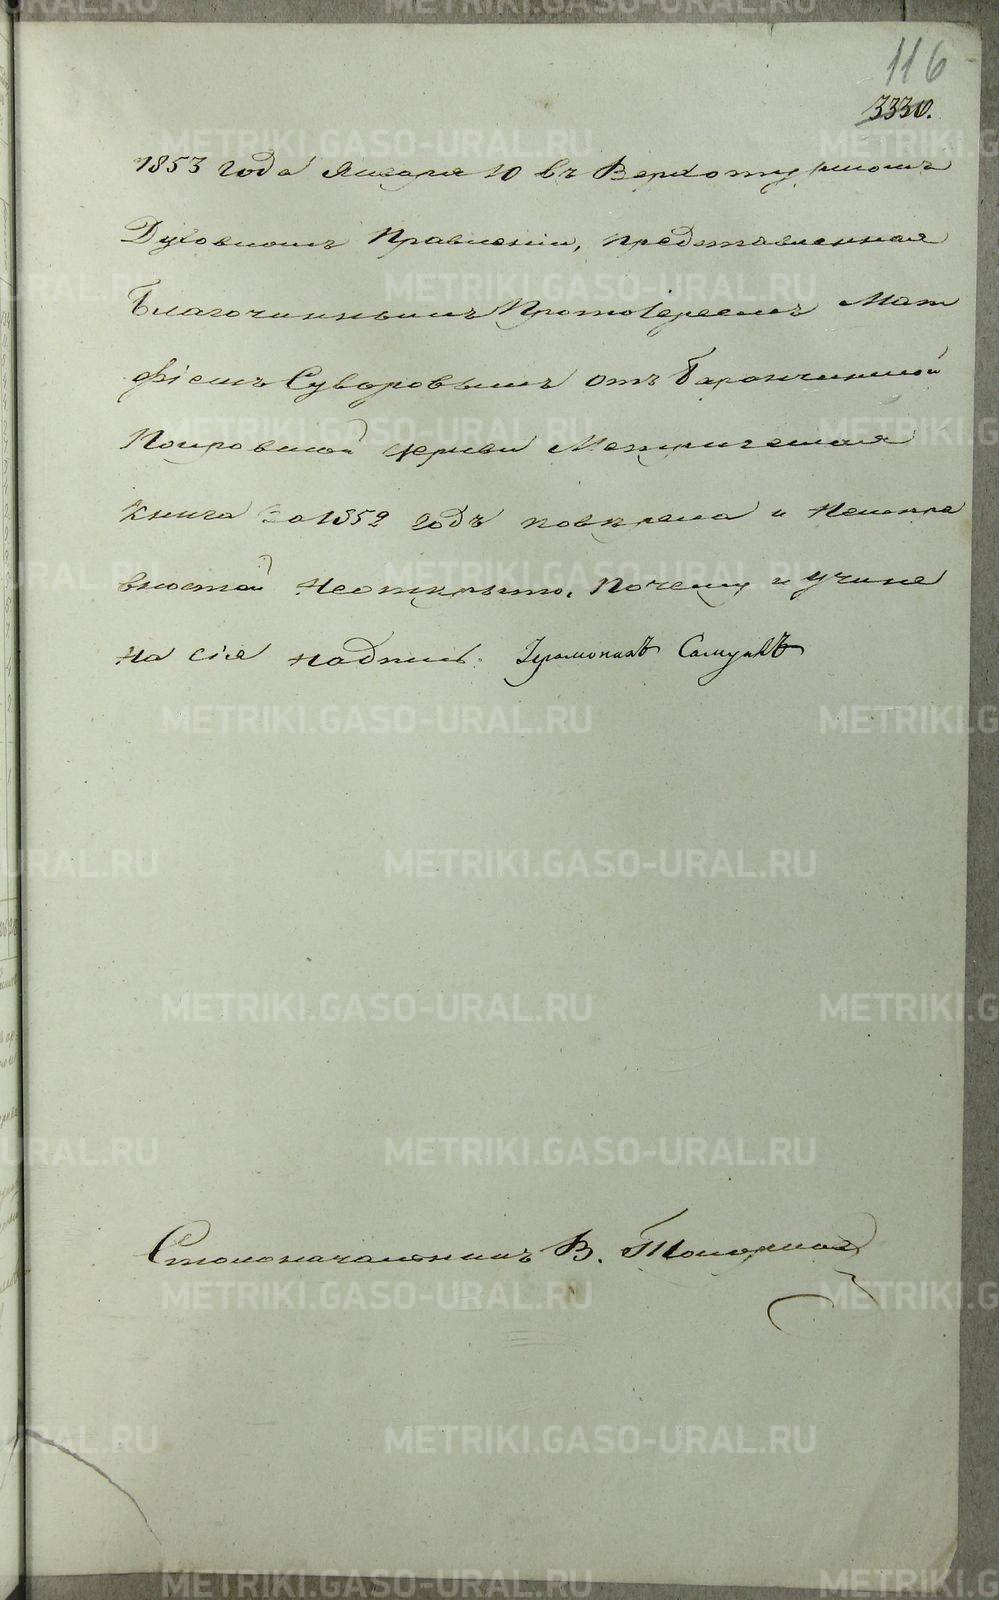 116
3330.
1853 года Января 10 въ Верхотурскомъ
Духовномъ Правленіи, представленная
Благочиннымъ Протоіереемъ Мат
фіемъ Суворовымъ отъ Баранчинской
Покровской церкви Метрическая
книга за 1852 годъ повѣрена и неиспра
вностей неоткрыто. Почему и учине
на сія надпись. Іеромонахъ Самуилъ
Столоначальникъ В.